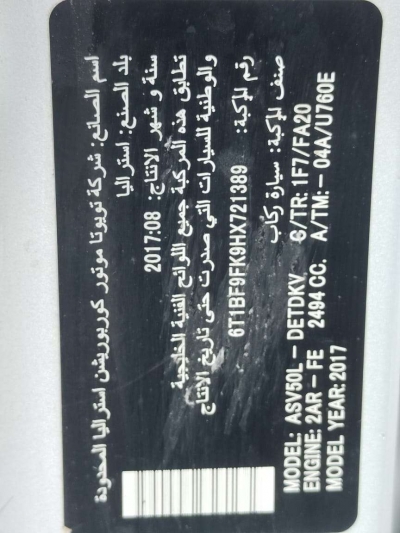 اسم الصانع: شركة تويوتا موتور كوربوريشن استراليا المحدودة
بلد الصنع: استراليا
سنة و شهر الانتاج: 2017:08
تطابق هذه المركبة جميع اللوائح الفنية الخليجية
والوطنية للسيارات التي صدرت حتى تاريخ الانتاج
رقم المركبة: 6T1BF9FK9HX721389
صنف المركبة: سيارة ركاب
MODEL: ASV50L - DETDKV C/TR: 1F7/FA20
ENGINE: 2AR - FE 2494 CC. A/TM: - 04A/U760E
MODEL YEAR: 2017